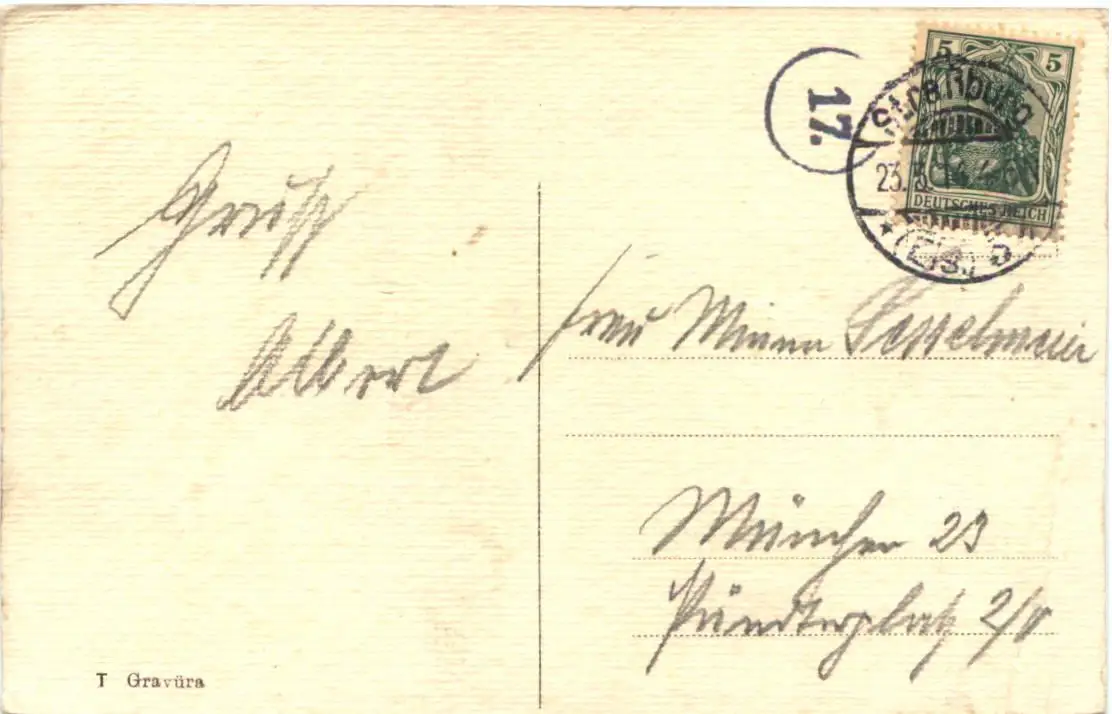 5 5
Straßburg
23.5.
DEUTSCHES REICH
* (Els.)
17.
Gruß
Albert
Frau Minna
München 23
Pündterplatz 2/
T Gravüra